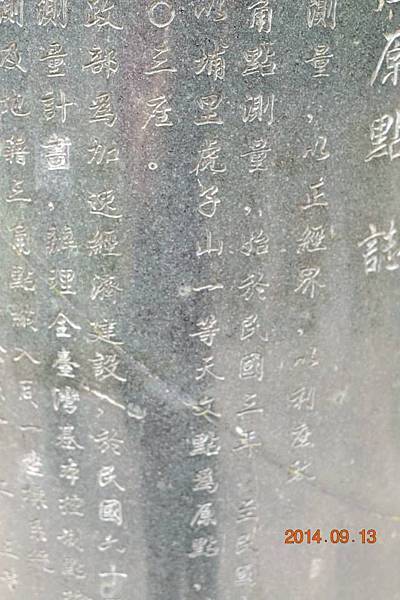 原點誌
測量，以正經界，以利產
角點測量，始於民國三年，至民國
以埔里虎子山一等天文點為原點，
〇三座。
政部為加速經濟建設，於民國六十
測量計畫，辦理全臺灣基本控制點
測及地籍三角點納入同一坐標系統
2014.09.13